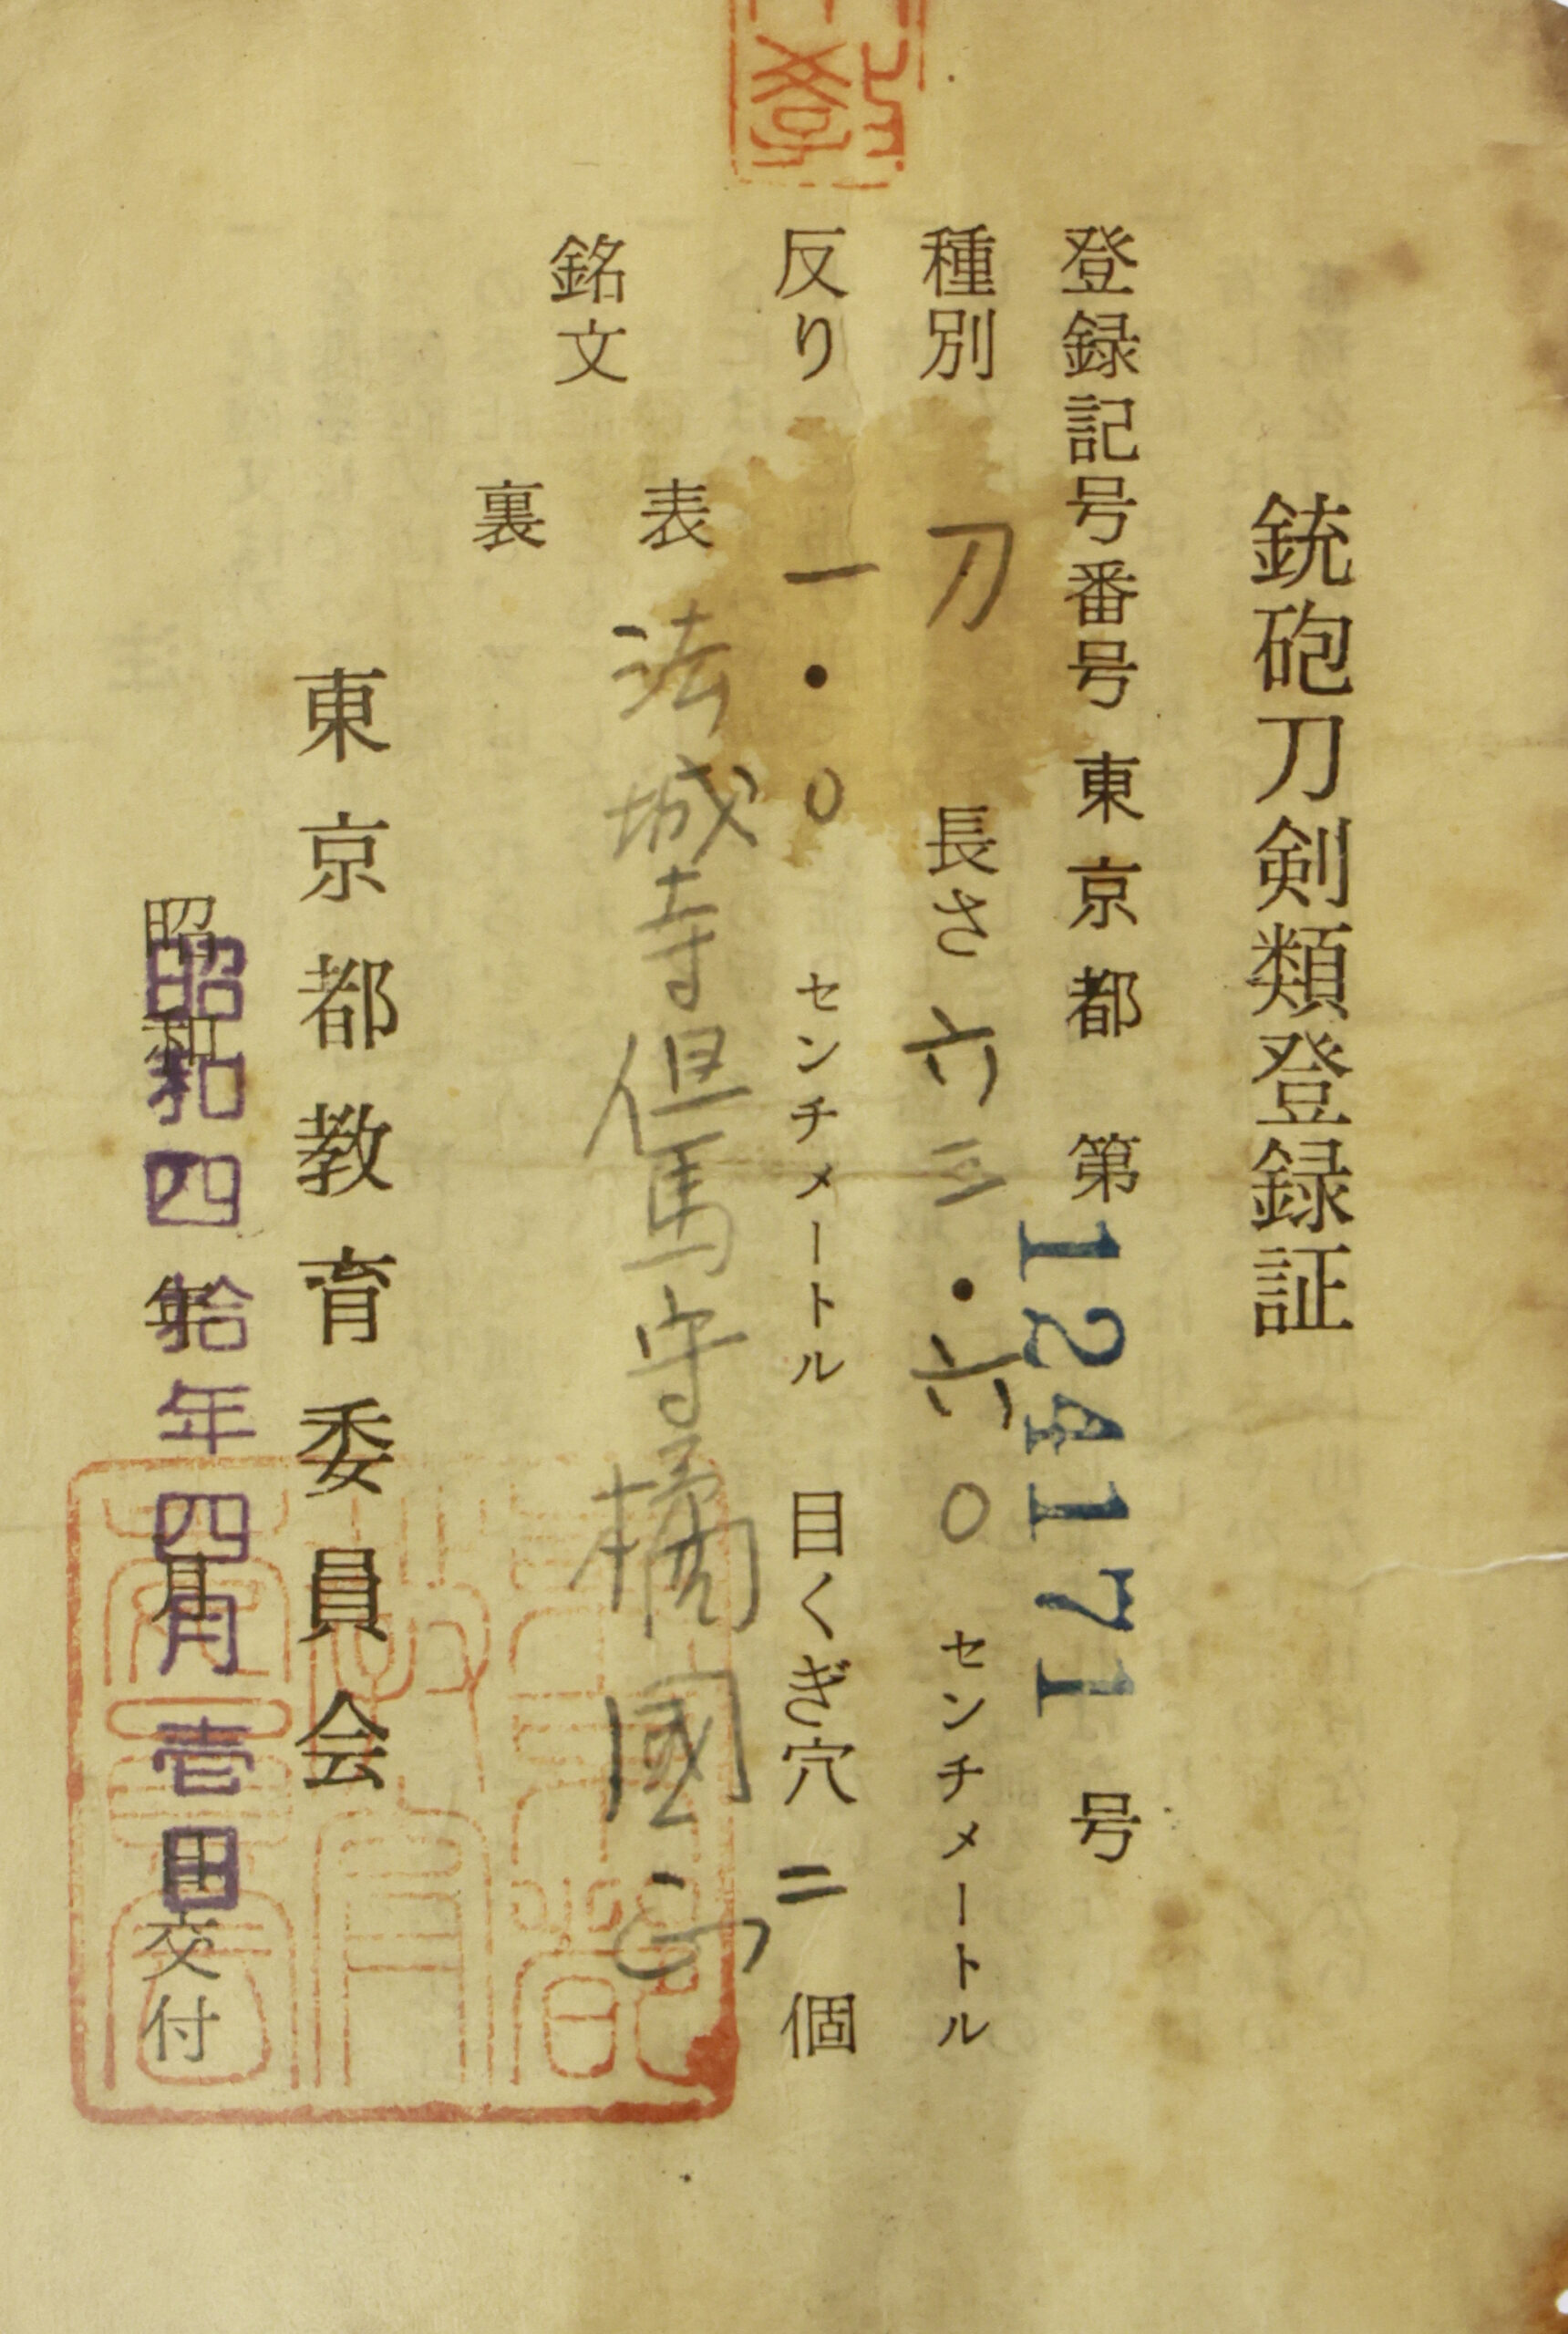 銃砲刀剣類登録証
登録記号番号 東京都 第 124171 号
種別 刀 長さ 六三・六〇 センチメートル
反り 一・〇 センチメートル 目くぎ穴 二 個
銘文
表 法城寺但馬守橘國
裏
東京都教育委員会
昭和 年 月 日交付
昭和四拾年四月壱日